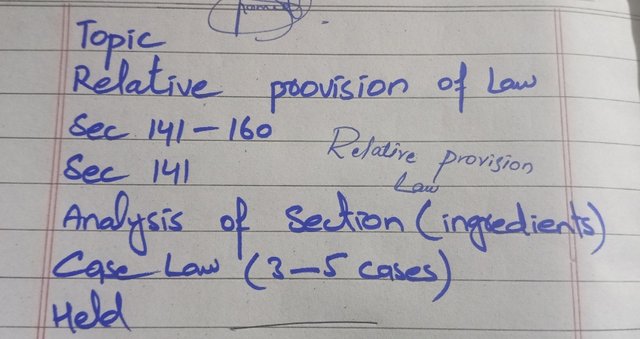 Topic
Relative provision of Law
Sec 141 - 160
Relative provision
Law
Sec 141
Analysis of Section (ingredients)
Case Law (3-5 cases)
Held